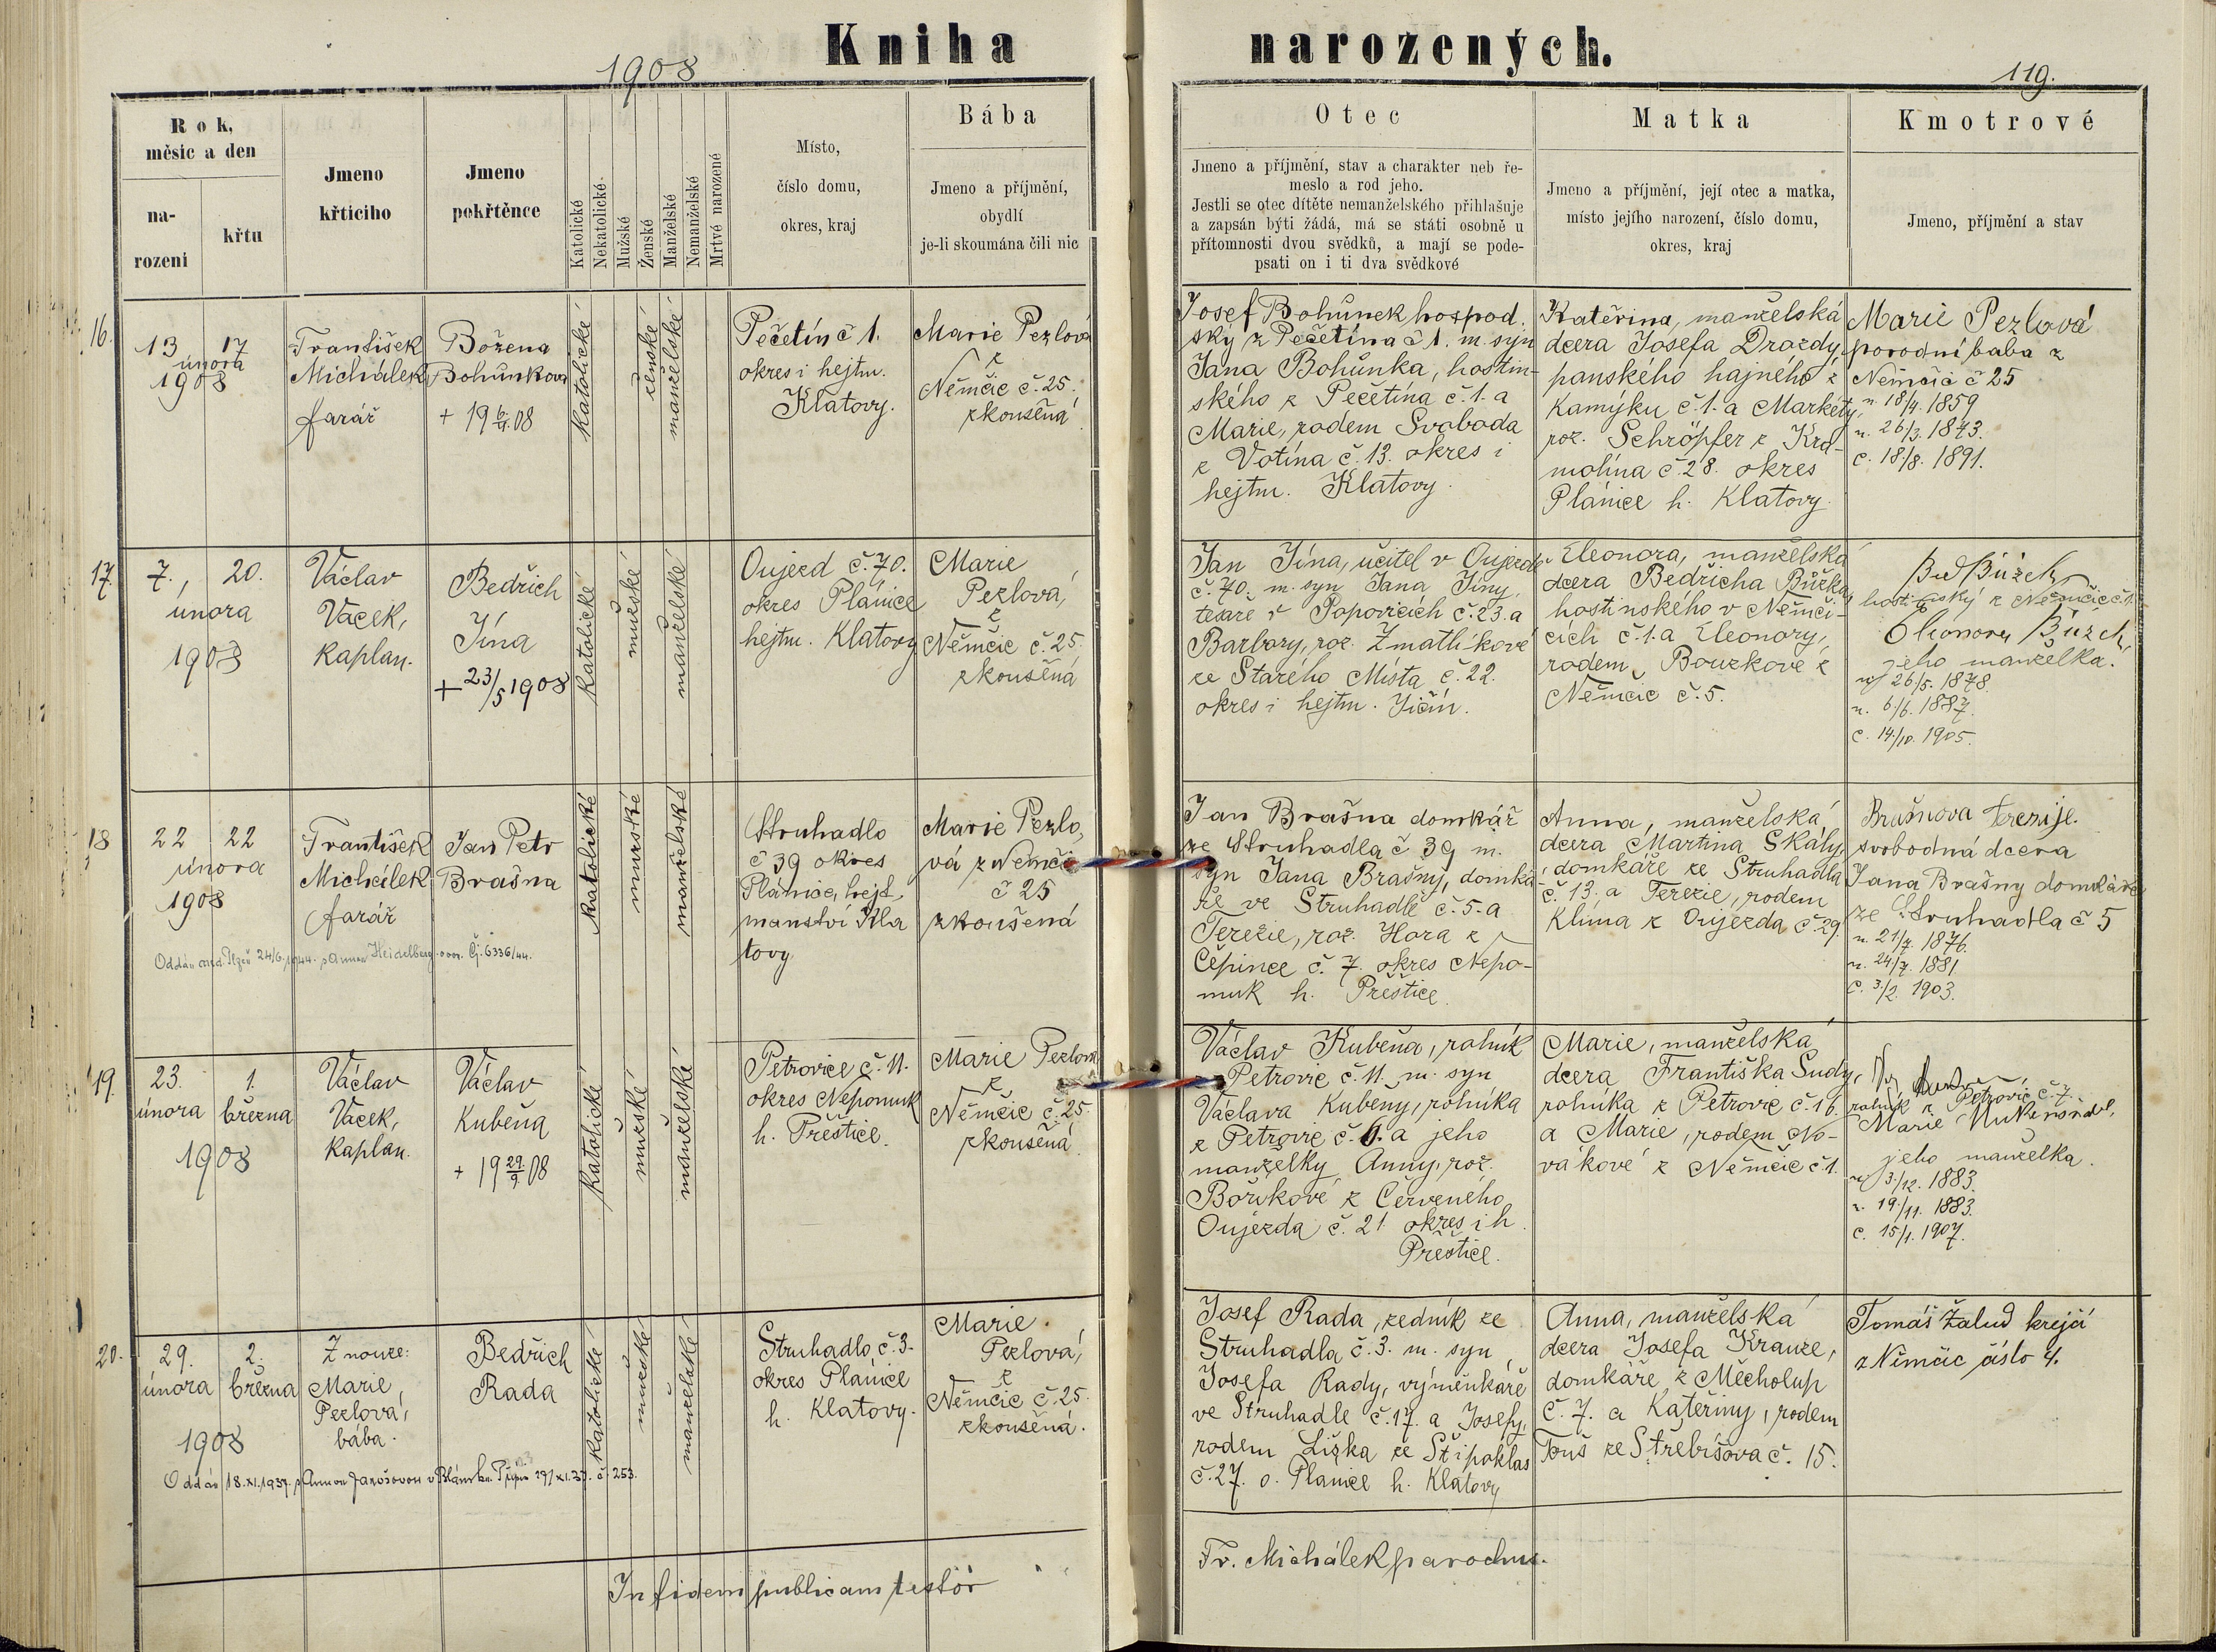 Kniha narozených.
1908
119.
Rok,
měsíc a den
na-
rození
křtu
Jmeno
křticího
Jmeno
pokřtěnce
Katolické
Nekatolické
Mužské
Ženské
Manželské
Nemanželské
Mrtvé narozené
Místo,
číslo domu,
okres, kraj
Bába
Jmeno a příjmění,
obydlí
je-li skoumána čili nic
Otec
Jmeno a příjmění, stav a charakter neb ře-
meslo a rod jeho.
Jestli se otec dítěte nemanželského přihlašuje
a zapsán býti žádá, má se státi osobně u
přítomnosti dvou svědků, a mají se pode-
psati on i ti dva svědkové
Matka
Jmeno a příjmění, její otec a matka,
místo jejího narození, číslo domu,
okres, kraj
Kmotrové
Jmeno, příjmění a stav
16.
13 17
února
1908
František
Michálek
farář
Božena
Bohůnkova
+ 19 6/4 08
katolické
ženské
manželské
Pečetín č 1.
okres i hejtm.
Klatovy.
Marie Pezlová
z
Němčic č. 25.
zkoušená
Josef Bohůnek hospod.
ský z Pečetína č 1. m. syn
Jana Bohůnka, hostin-
ského z Pečetína č. 1. a
Marie, rodem Svoboda
z Votína č. 13. okres i
hejtm. Klatovy.
Kateřina, manželská
dcera Josefa Drozdy,
panského hajného z
Kamýku č. 1. a Markéty,
roz. Schröpfer z Krd-
molína č 28. okres
Plánice h. Klatovy.
Marie Pezlová
porodní baba z
Němčic č 25
n. 18/4. 1859
n. 26/3. 1843.
c. 18/8. 1891.
17.
7., 20.
února
1908
Václav
Vacek,
kaplan.
Bedřich
Jína
+ 23/5 1908
katolické
mužské
manželské
Oujezd č. 70.
okres Plánice
hejtm. Klatovy
Marie
Pezlová,
z
Němčic č. 25.
zkoušená
Jan Jína, učitel v Oujezdě
č. 70. m. syn Jana Jíny,
tesaře v Popovicích č. 23. a
Barbary, roz. Zmatlíkové
ze Starého Místa č. 22.
okres i hejtm. Jičín.
Eleonora, manželská
dcera Bedřicha Bůžka,
hostinského v Němči-
cích č. 1. a Eleonory,
rodem Bouzkové z
Němčic č. 5.
Bed Bůžek
hostinský z Němčic č. 1.
Eleonora Bůžek,
jeho manželka.
n. 26/5. 1878.
n. 6/6. 1887.
c. 14/10. 1905.
18
22 22
února
1908
František
Michálek
farář
Jan Petr
Brašna
katolické
mužské
manželské
Struhadlo
č 39 okres
Plánice, hejt.
manství Kla
tovy
Marie Pezlo,
vá z Němčic
č 25
zkoušená
Oddán 24/6. 1944. s Annou Heidelberg Čj. 6336/44.
Jan Brašna domkář
ze Struhadla č 39 m.
syn Jana Brašny, domká-
ře ve Struhadle č. 5. a
Terezie, roz. Hora z
Čepince č. 7. okres Nepo-
muk h. Přeštice.
Anna, manželská
dcera Martina Skály,
domkáře ze Struhadla
č. 13. a Terezie, rodem
Klíma z Oujezda č. 29.
Brašnova Terezije.
svobodná dcera
Jana Brašny domkáře
ze Struhadla č 5
n. 21/7. 1876.
n. 24/7. 1881
c. 3/2. 1903.
19.
23. 1.
února března
1908
Václav
Vacek,
kaplan.
Václav
Kubeňa
+ 19 29/9 08
katolické
mužské
manželské
Petrovice č. 11.
okres Nepomuk
h. Přeštice.
Marie Pezlova
z
Němčic č. 25.
zkoušená
Václav Kubeňa, rolník
Petrovic č. 11. m. syn
Václava Kubeny, rolníka
z Petrovic č. a jeho
manželky Anny, roz.
Boříkové z Červeného
Oujezda č. 21. okres i h.
Přeštice.
Marie, manželská
dcera Františka Sudy,
rolníka z Petrovic č. 16.
a Marie, rodem No-
vákové z Němčic č 1.
rolník z Petrovic č. 7
Marie
jeho manželka.
n. 3/12. 1883.
n. 19/11. 1883.
c. 15/1. 1907.
20.
29. 2.
února března
1908
Z nouze:
Marie
Pezlová,
bába.
Bedřich
Rada
katolické
mužské
manželské
Struhadlo č. 3.
okres Plánice
h. Klatovy.
Marie
Pezlová,
z
Němčic č. 25.
zkoušená.
Oddán 18. XI. 1937. s Annou Janošovou v 29/XI. 37. č. 253.
Josef Rada, zedník ze
Struhadla č. 3. m. syn
Josefa Rady, výměnkáře
ve Struhadle č. 17. a Josefy,
rodem Liška ze Štipoklas
č. 27. o. Planice h. Klatovy
Anna, manželská
dcera Josefa Krauze,
domkáře z Měcholup
č. 7. a Kateřiny, rodem
Touš ze Střebišova č. 15.
Tomáš Žalud krejčí
z Němčic číslo 4.
In fidem publicam testor Fr. Michálek parochus.